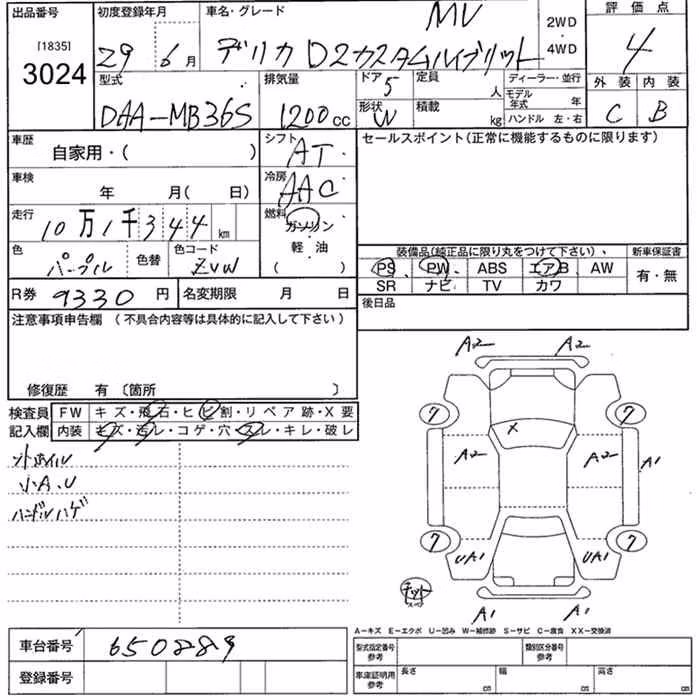 出品番号 初度登録年月 車名・グレード MV 2WD 評価点
[1835] 3024 29 年 6 月 デリカ D2カスタムハイブリット 4WD 4
型式 排気量 ドア 5 定員 人 ディーラー・並行 外装 内装
DAA-MB36S 1200cc 形状 W 積載 kg モデル年式 年 C B
ハンドル 左・右
車歴 シフト セールスポイント(正常に機能するものに限ります)
自家用・( ) AT
車検 年 月( 日) 冷房 AAC
走行 10万1千344 km 燃料 ガソリン
軽油
( )
色 パープル 色替 色コード ZVW
装備品(純正品に限り丸をつけて下さい)、 新車保証書
PS PW ABS エアB AW 有・無
SR ナビ TV カワ
R券 9330 円 名変期限 月 日 後日品
注意事項申告欄 (不具合内容等は具体的に記入して下さい)
修復歴 有 〔箇所 〕
検査員 FW キズ・飛石・ヒビ割・リペア跡・X要
記入欄 内装 キズ・汚レ・コゲ・穴・スレ・キレ・破レ
小A.U
ハンドルハゲ
A2 A2
7 7
X
A2 A2 A1
7 7
UA1 UA1
A1 A1
A−キズ E−エクボ U−凹み W−補修跡 S−サビ C−腐食 XX−交換済
車台番号 650889 型式指定番号 参考 類別区分番号 参考
登録番号 車庫証明用 参考 長さ cm 幅 cm 高さ cm